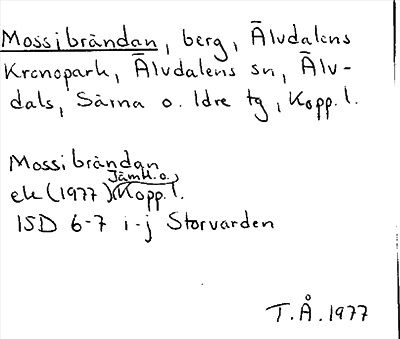 Mossibrändan, berg, Älvdalens
Kronopark, Älvdalens sn, Älv-
dals, Särna o. Idre tg, Kopp. l.
Mossibrändan
Jämtl. o.
ek (1977) Kopp. l.
15D 6-7 i-j Storvarden
T.Å. 1977